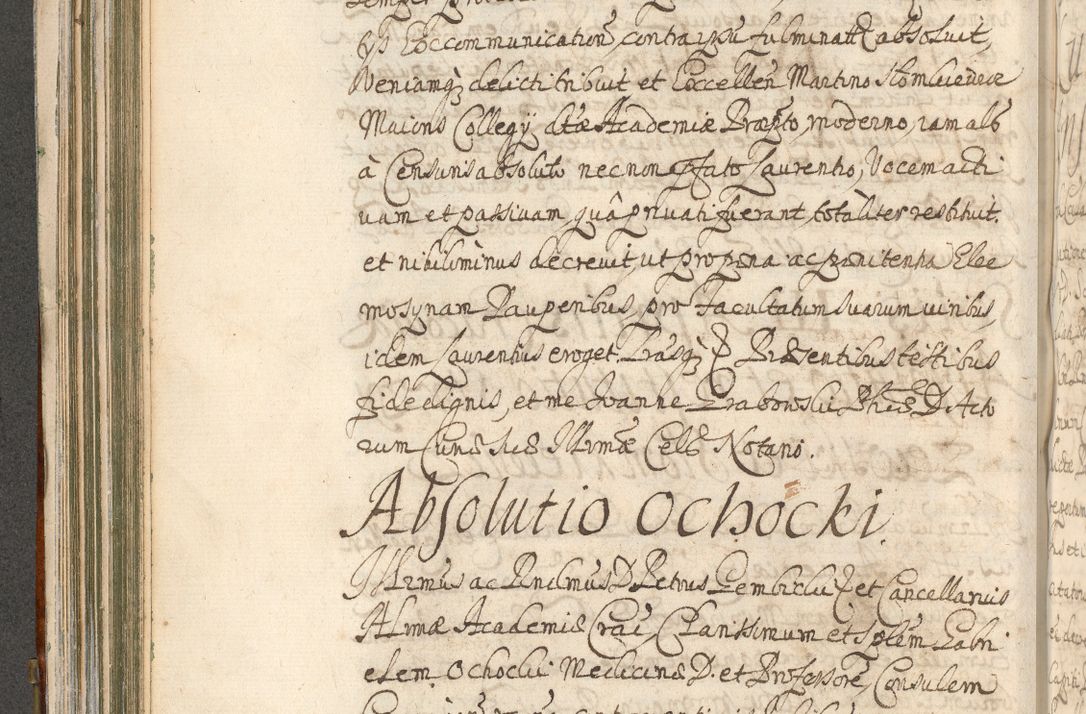 ÿs Excommunicatiōe contra ipsū fulminatæ absoluit,
Veniamq́ delicti tribuit et Excellen Martino Słomkiewicz
Maioris Collegÿ dtæ Academiæ Præpto, moderno, iam als
à Censuris absoluto necnon pfato Laurentio, Vocem acti
uam et passiuam, quâ priuati fuerant, totaliter restituit.
et nihilominus decreuit, ut pro pœna ac pœnitentia Elee
mosynam Pauperibus, pro facultatum suarum uiribus,
idem Laurentius eroget. Præsentibus testibus
fide dignis, et me Joanne Grabowski Phiæ D. Acto
rum Curiæ Suæ Illrmæ Cels Notario.
Absolutio Ochocki.
Illrmus ac Rndmus D. Petrus Gembicki et Cancellarius
Almæ Academiæ Crac, Clarissimum et Sptem Gabri
elem Ochocki Medicinæ D. et Professorē, Consulem